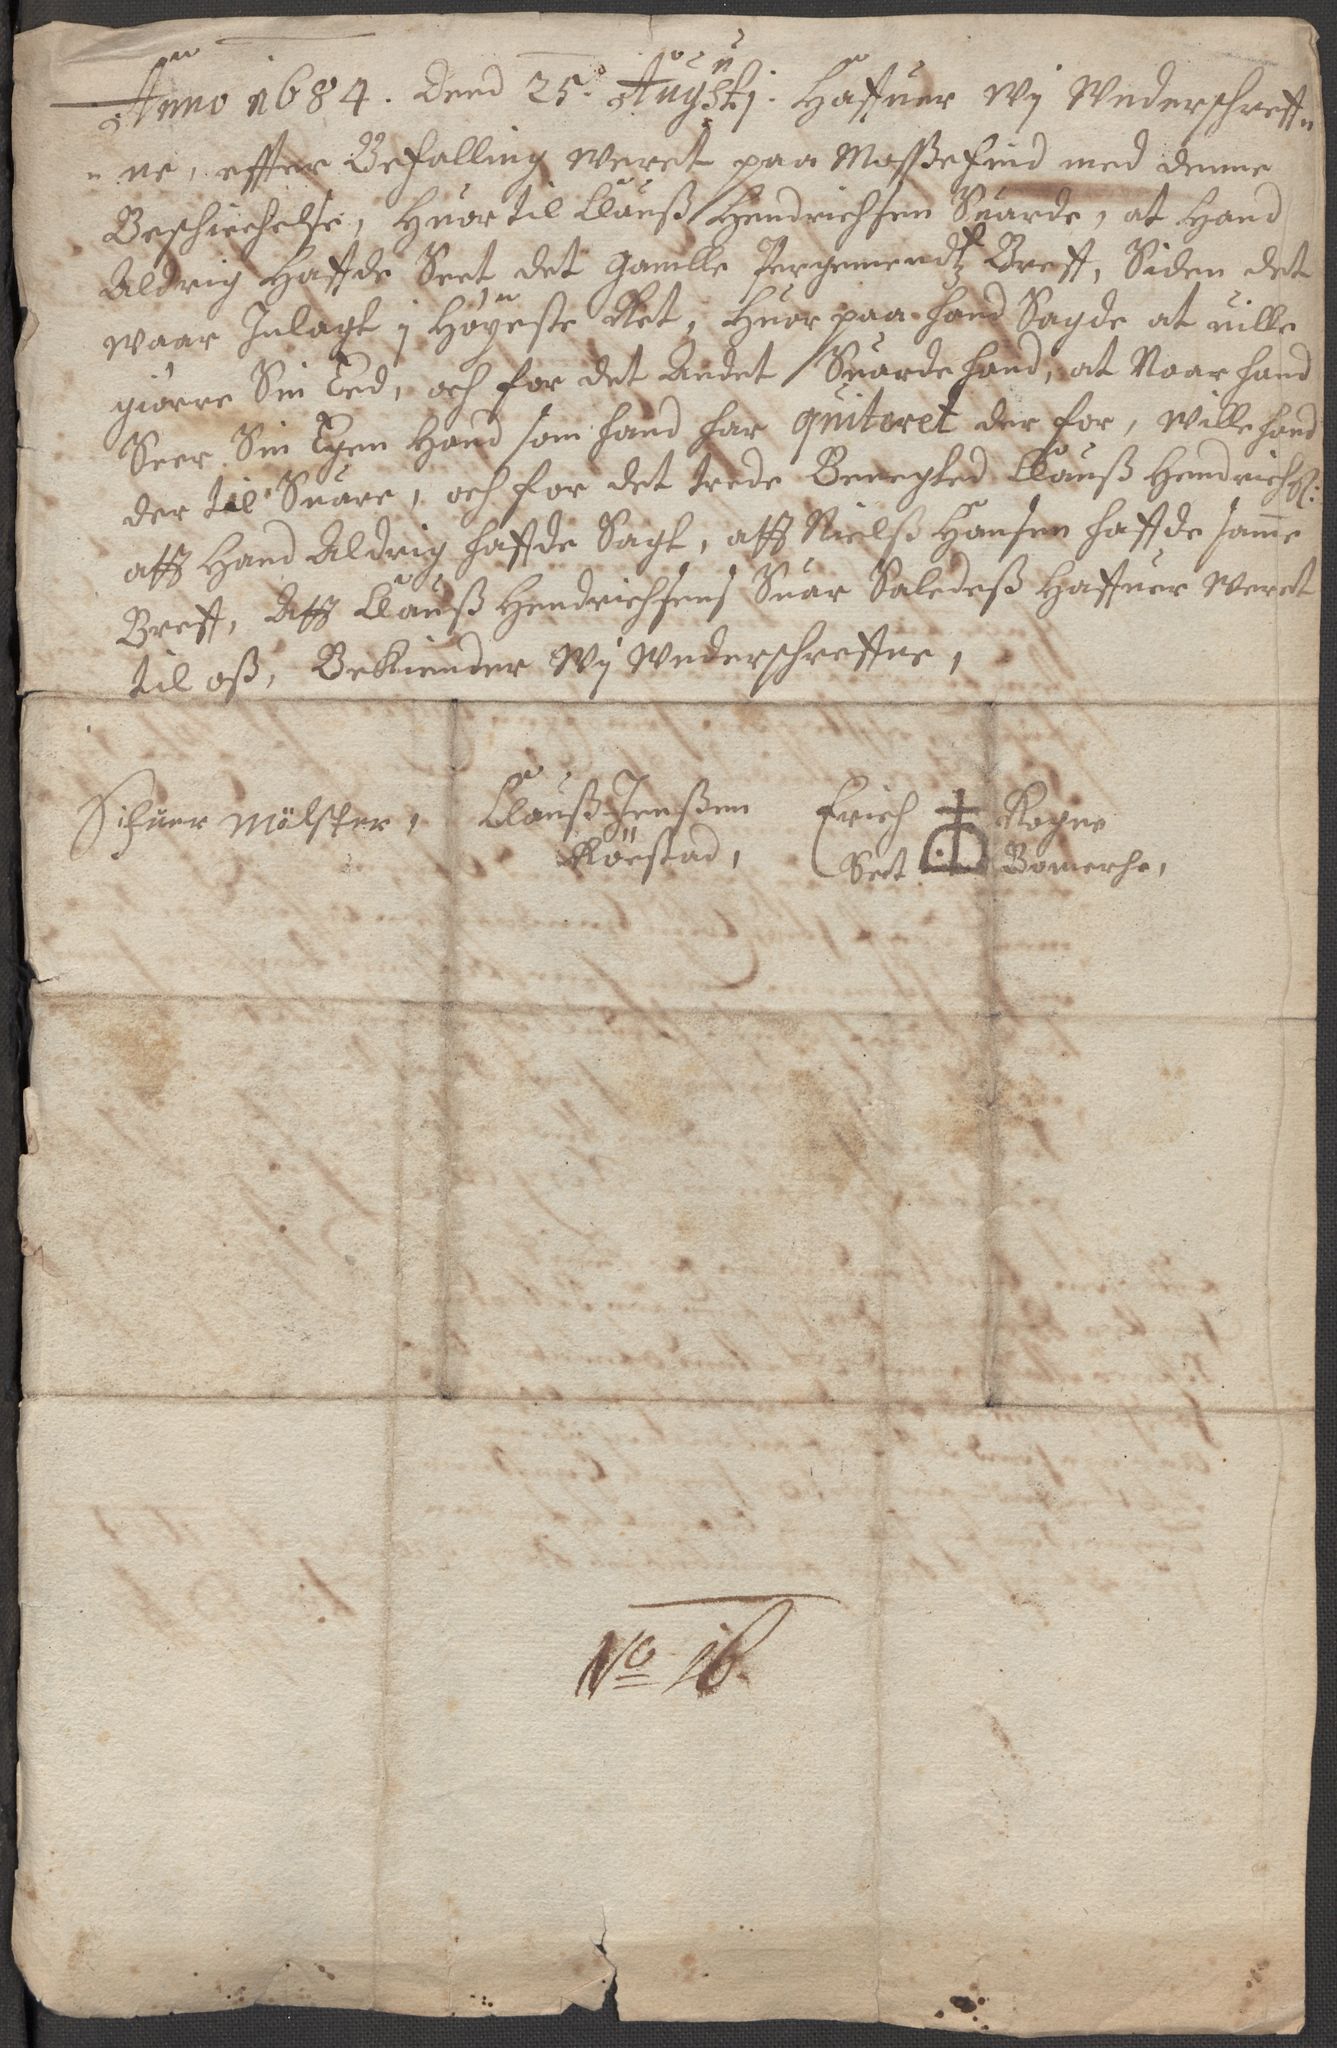 Anno 1684. Dend 25. Augustj. Haffuer wj Wnderschreff=
=ne, effter Befalling weret paa Mosßefind med denne
Beschicchelse, Huor til Clauß Hendrichsen Suarde, at Hand
Aldrig Haffde Seet det gamlle Pergemendtz Breff, Siden det
waar Inlagt j Høyeste Ret, Huor paa hand Sagde at uille
giørre Sin Eed, och for det Andet Suarde hand, at Naar hand
Seer Sin Egen Hand som hand har quiteret der for, wille hand
der til Suare, och for det trede Benegted Clauß Hendrichs:
att Hand Aldrig haffde Sagt, att Nielß Hansen haffde samme
Breff, Att Clauß Hendrichsens Suar Saledeß Haffuer weret
til oß, Bekiender wj Wnderschreffne,
Sifuer Mølster, Clauß Jenßen Erich Rogne
Røestad, Seet Bomerche,
No 16.